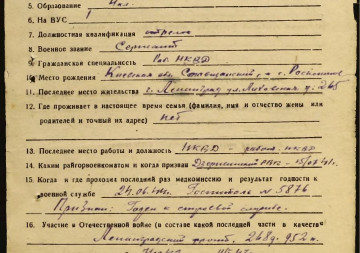 5. Образование Нач.
6. На ВУС
7. Должностная квалификация стрелок
8. Военное звание Сержант
9. Гражданская специальность Раб. НКВД
10. Место рождения Киевская обл.
11. Последнее место жительства г. Ленинград ул.
12. Где проживает в настоящее время семья (фамилия, имя и отчество жены или
родителей и точный их адрес) нет
13. Последнее место работы и должность НКВД – работн. НКВД
14. Каким райгорвоенкоматом и когда призван Дзержинский РВК
15. Когда и где проходил раз медкомиссию и результат годности к
военной службе 24.06. Госпиталь № 5876
Признан: Годен к строевой службе.
16. Участие в Отечественной войне (в составе какой последней части в качестве
Ленинградский фронт, 268 д. 952 п.